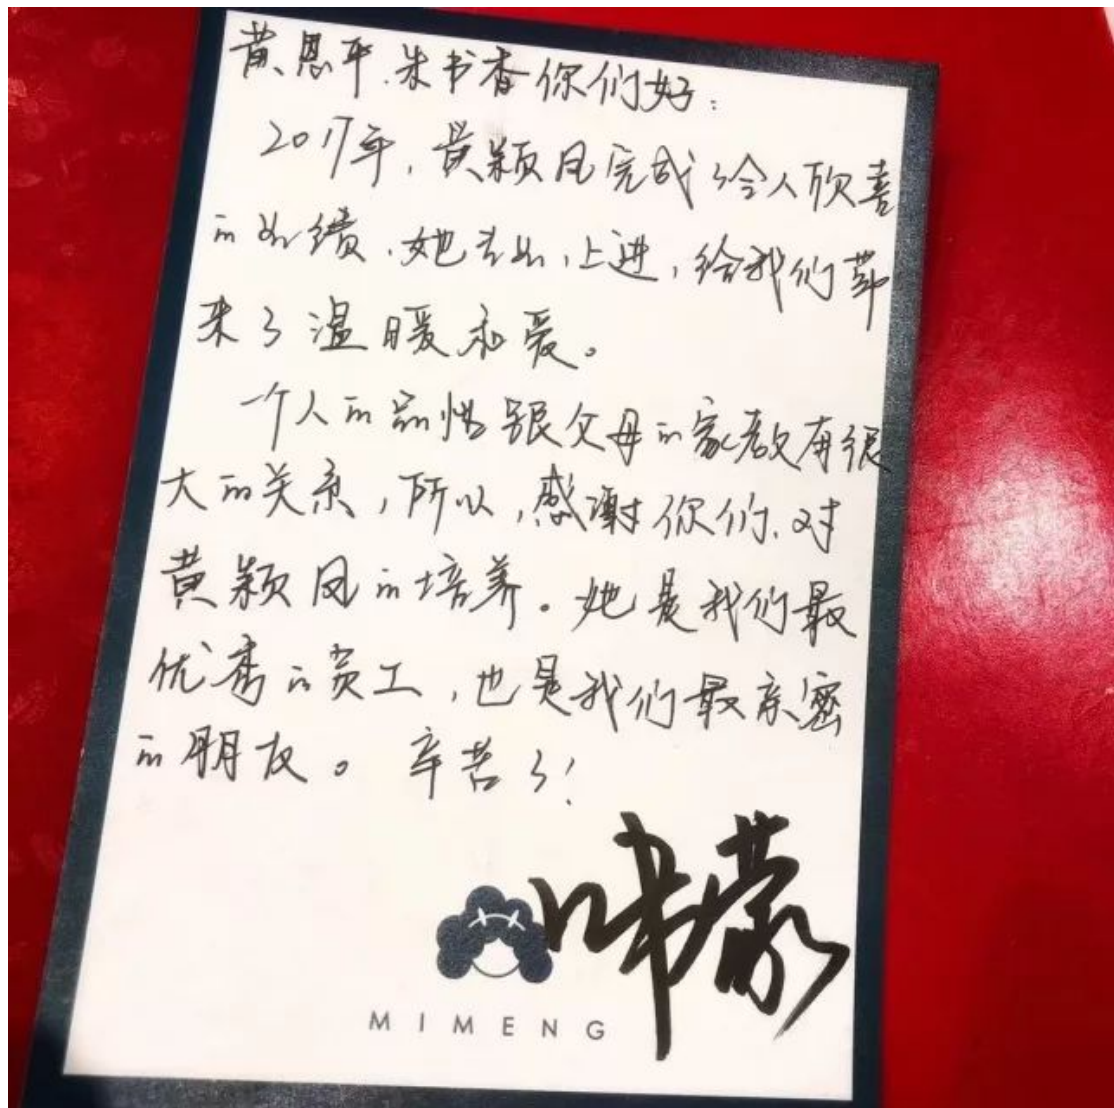 黄恩平、朱书香你们好：
2017年，黄颖凤完成了令人欣喜
的业绩，她专业、上进，给我们带
来了温暖和爱。
一个人的品性跟父母的家教有很
大的关系，所以，感谢你们，对
黄颖凤的培养。她是我们最
优秀的员工，也是我们最亲密
的朋友。辛苦了！
咪蒙
MIMENG